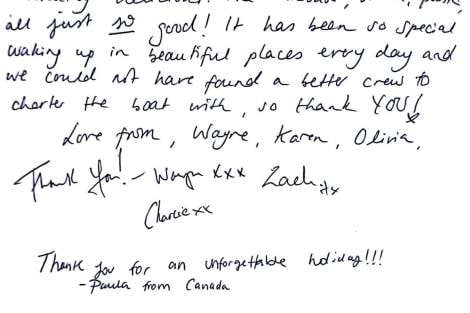 all just so good! It has been so special
waking up in beautiful places every day and
we could not have found a better crew to
charter the boat with, so thank YOU!
Love from, Wayne, Karen, Olivia,
Thank You! - Wayn xxx Zach xx
Charlie xx
Thank you for an unforgettable holiday!!!
- Paula from Canada